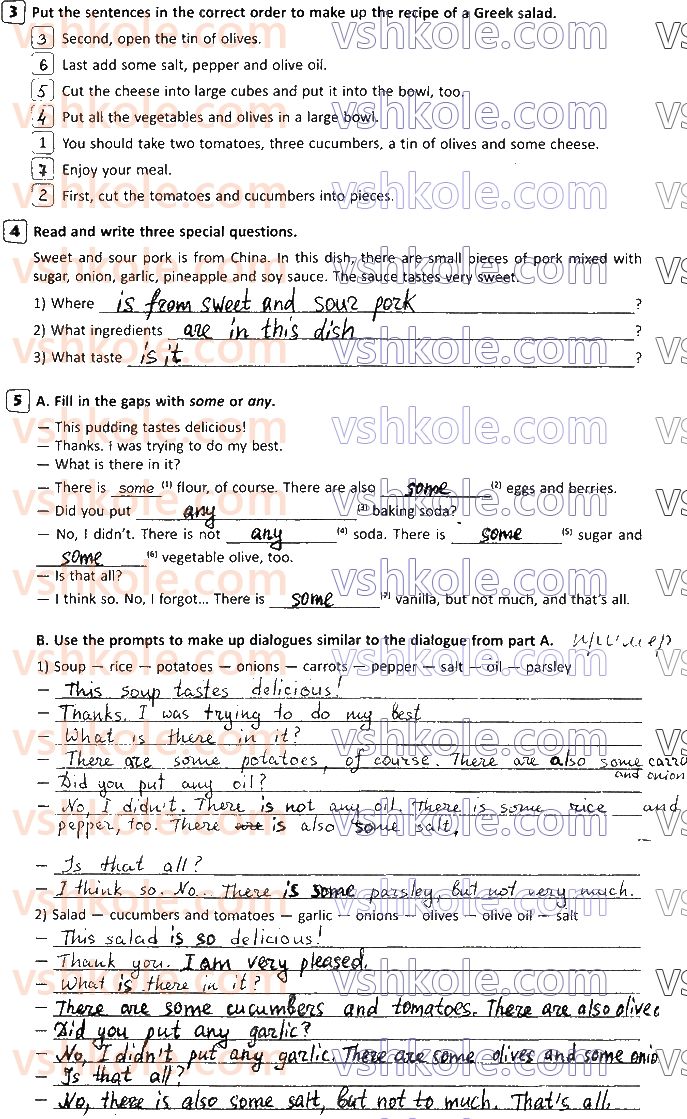 3 Put the sentences in the correct order to make up the recipe of a Greek salad.
3 Second, open the tin of olives.
6 Last add some salt, pepper and olive oil.
5 Cut the cheese into large cubes and put it into the bowl, too.
4 Put all the vegetables and olives in a large bowl.
1 You should take two tomatoes, three cucumbers, a tin of olives and some cheese.
7 Enjoy your meal.
2 First, cut the tomatoes and cucumbers into pieces.
4 Read and write three special questions.
Sweet and sour pork is from China. In this dish, there are small pieces of pork mixed with
sugar, onion, garlic, pineapple and soy sauce. The sauce tastes very sweet.
1) Where is from sweet and sour pork ?
2) What ingredients are in this dish ?
3) What taste is it ?
5 A. Fill in the gaps with some or any.
— This pudding tastes delicious!
— Thanks. I was trying to do my best.
— What is there in it?
— There is some (1) flour, of course. There are also some (2) eggs and berries.
— Did you put any (3) baking soda?
— No, I didn't. There is not any (4) soda. There is some (5) sugar and
some (6) vegetable olive, too.
— Is that all?
— I think so. No, I forgot... There is some (7) vanilla, but not much, and that's all.
B. Use the prompts to make up dialogues similar to the dialogue from part A.
1) Soup — rice — potatoes — onions — carrots — pepper — salt — oil — parsley
— This soup tastes delicious!
— Thanks. I was trying to do my best
— What is there in it?
— There are some potatoes, of course. There are also some carro
and onion
— Did you put any oil?
— No, I didn't. There is not any oil. There is some rice and
pepper, too. There is also some salt.
— Is that all?
— I think so. No. There is some parsley, but not very much.
2) Salad — cucumbers and tomatoes — garlic — onions — olives — olive oil — salt
— This salad is so delicious!
— Thank you. I am very pleased.
— What is there in it?
— There are some cucumbers and tomatoes. There are also olive
— Did you put any garlic?
— No, I didn't put any garlic. There are some olives and some onio
— Is that all?
— No, there is also some salt, but not to much. That's all.
vshkole.com